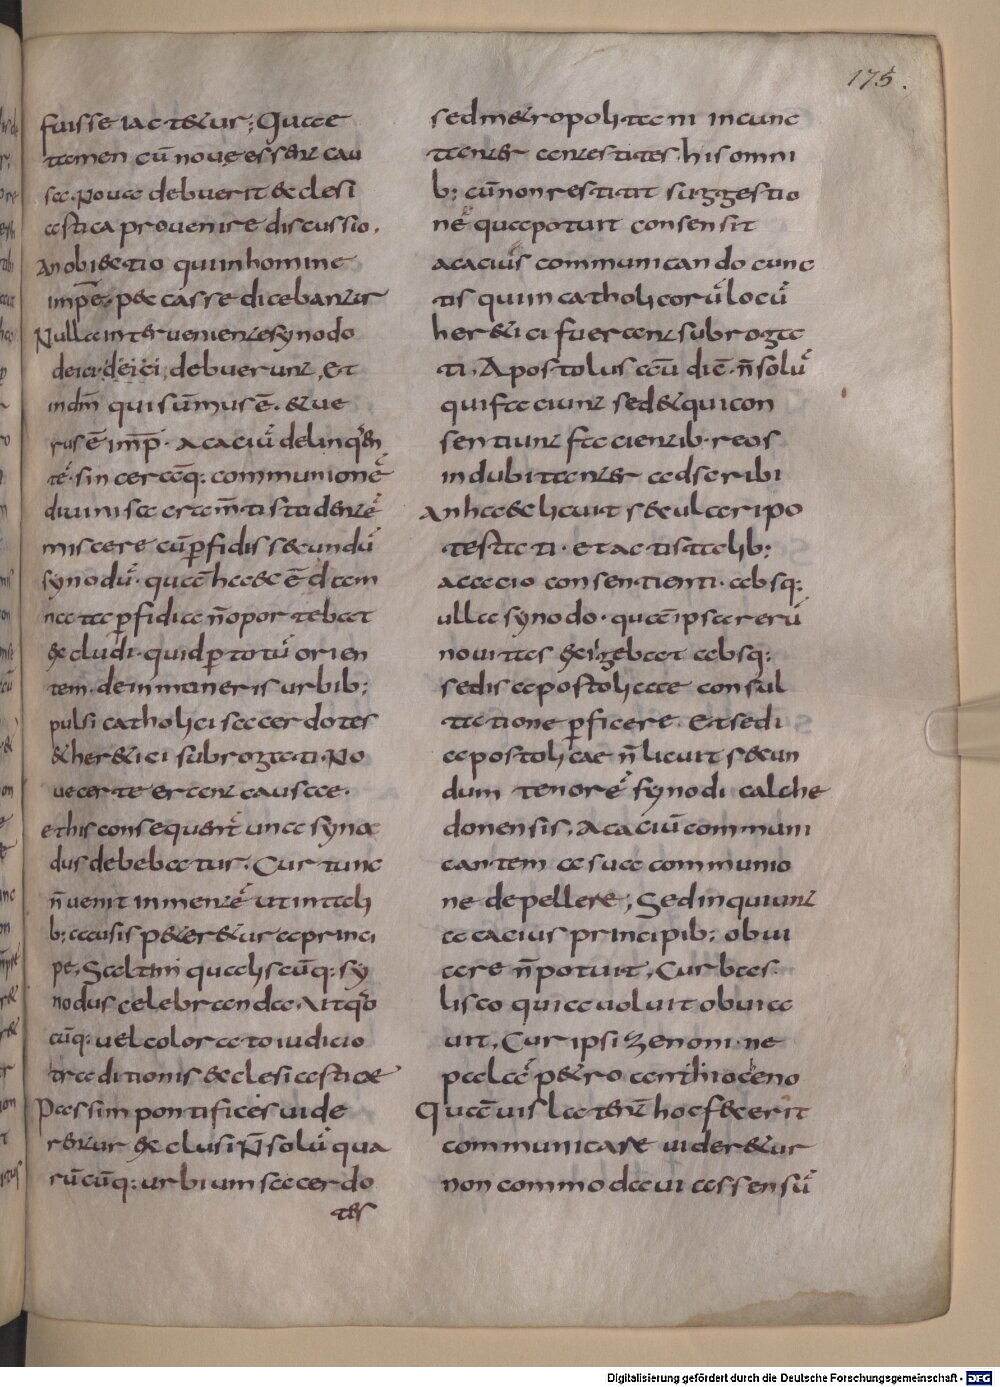 175.
fuisse iact&ur; Quae
tamen cū noue essent cau
sae. Noua debuerit &clesi
astica prouenire discussio.
An obiectio qui in homine
impē. peccasse dicebantur
Nulla interueniente synodo
deici deici debuerunt, Et
indm̄ qui sūmus ē. & ue
rus ē imp̄. acaciū delinquen
tē. sincerāq: communionē
diuini sacram̄ti studentē
miscere cū perfidis secundū
synodū. quae hec ē dam
nata perfidia n̄ oportebat
&cludi. quid per totū orien
tem. de inmaneris urbib;
pulsi catholici sacerdotes
& her&ici subrogati. No
ue certe erant causae.
et his consequent̄ una syno
dus debebatur. Cur tunc
n̄ uenit in mentē ut in tali
b; ausis p&er&ur a princi
pe, Saltim qualiscūq: sy
nodus celebranda. Ut quo
cūq: uel colorato iudicio
traditionis &clesiasticae
Passim pontifices uide
rentur &clusi N̄ solū qua
rūcūq: urbium sacerdo
tes
sed m&ropolitani incunc
tanter antestites. his omni
b; cū non restitit suggestio
nē quae potuit consensit
acacius communicando cunc
tis qui in catholicorū locū
her&ici fuerant subroga
ti, Apostolus aū diē. n̄ solū
qui faciunt sed & qui con
sentiunt facientib. reos
indubitanter adscribi
An haec licuit secularipo
testati. et ac tis talib;
acacio consentienti. absq;
ulla synodo. quae ipsa rerū
nouitas &igebat absq;
sedis apostolicae consul
tatione perficere. Et sedi
apostolicae n̄ licuit secun
dum tenorē synodi calche
donensis, Acaciū communi
cantem a sua communio
ne depellere; Sed inquiunt
acacius principib; obui
are n̄ potuit, Cur bas
lisco quia uoluit obuia
uit, Cur ipsi Zenoni. ne
palā p&ro anthioceno
Quāuis latent̄ hoc fecerit
communicare uider&ur
non commodaui assensū
Digitalisierung gefördert durch die Deutsche Forschungsgemeinschaft - DFG